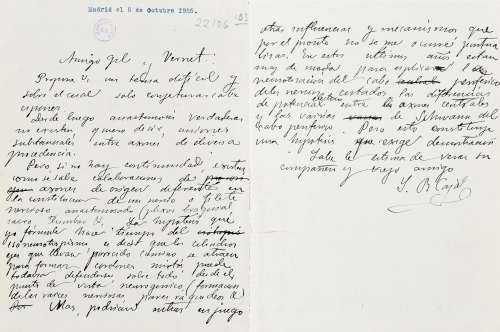 Madrid el 5 de Octubre 1925.
22106
Amigo Gil y Vernet.
Propone V. un tema dificil y
sobre el cual solo conjeturas cabe
exponer.
Desde luego anastomosis verdaderas
no existen, quiero decir, uniones
substanciales entre axones de diversa
procedencia.
Pero si no hay continuidad existen
como se sabe colaboraciones de
axones de origen diferente en
la constitucion de un nervio o filete
nervioso anastomosado (plexos braquial
La hipotesis que
yo formulé hace tiempo del
isoneurotropismo es decir que los cilindros
ejes que llevan parecido camino se atraen
para formar cordones mixtos puede
todavia defenderse sobre todo desde el
punto de vista neurogenico (formacion
de las raices nerviosas pares raquideos &)
Mas, podrian entrar en juego
otras influencias y mecanismos que
por el pronto no se me ocurre puntua
lizar. En estos ultimos años estan
muy de moda para explicar la
neurotizacion del cabo periferico
de los nervios cortados, las diferencias
de potencial electrico entre los axones centrales
y las vainas de Schwann del
cabo periferico. Pero esto constituye
una hipotesis que exige demostracion
Sabe le estima de veras su
compañero y viejo amigo
S. R Cajal